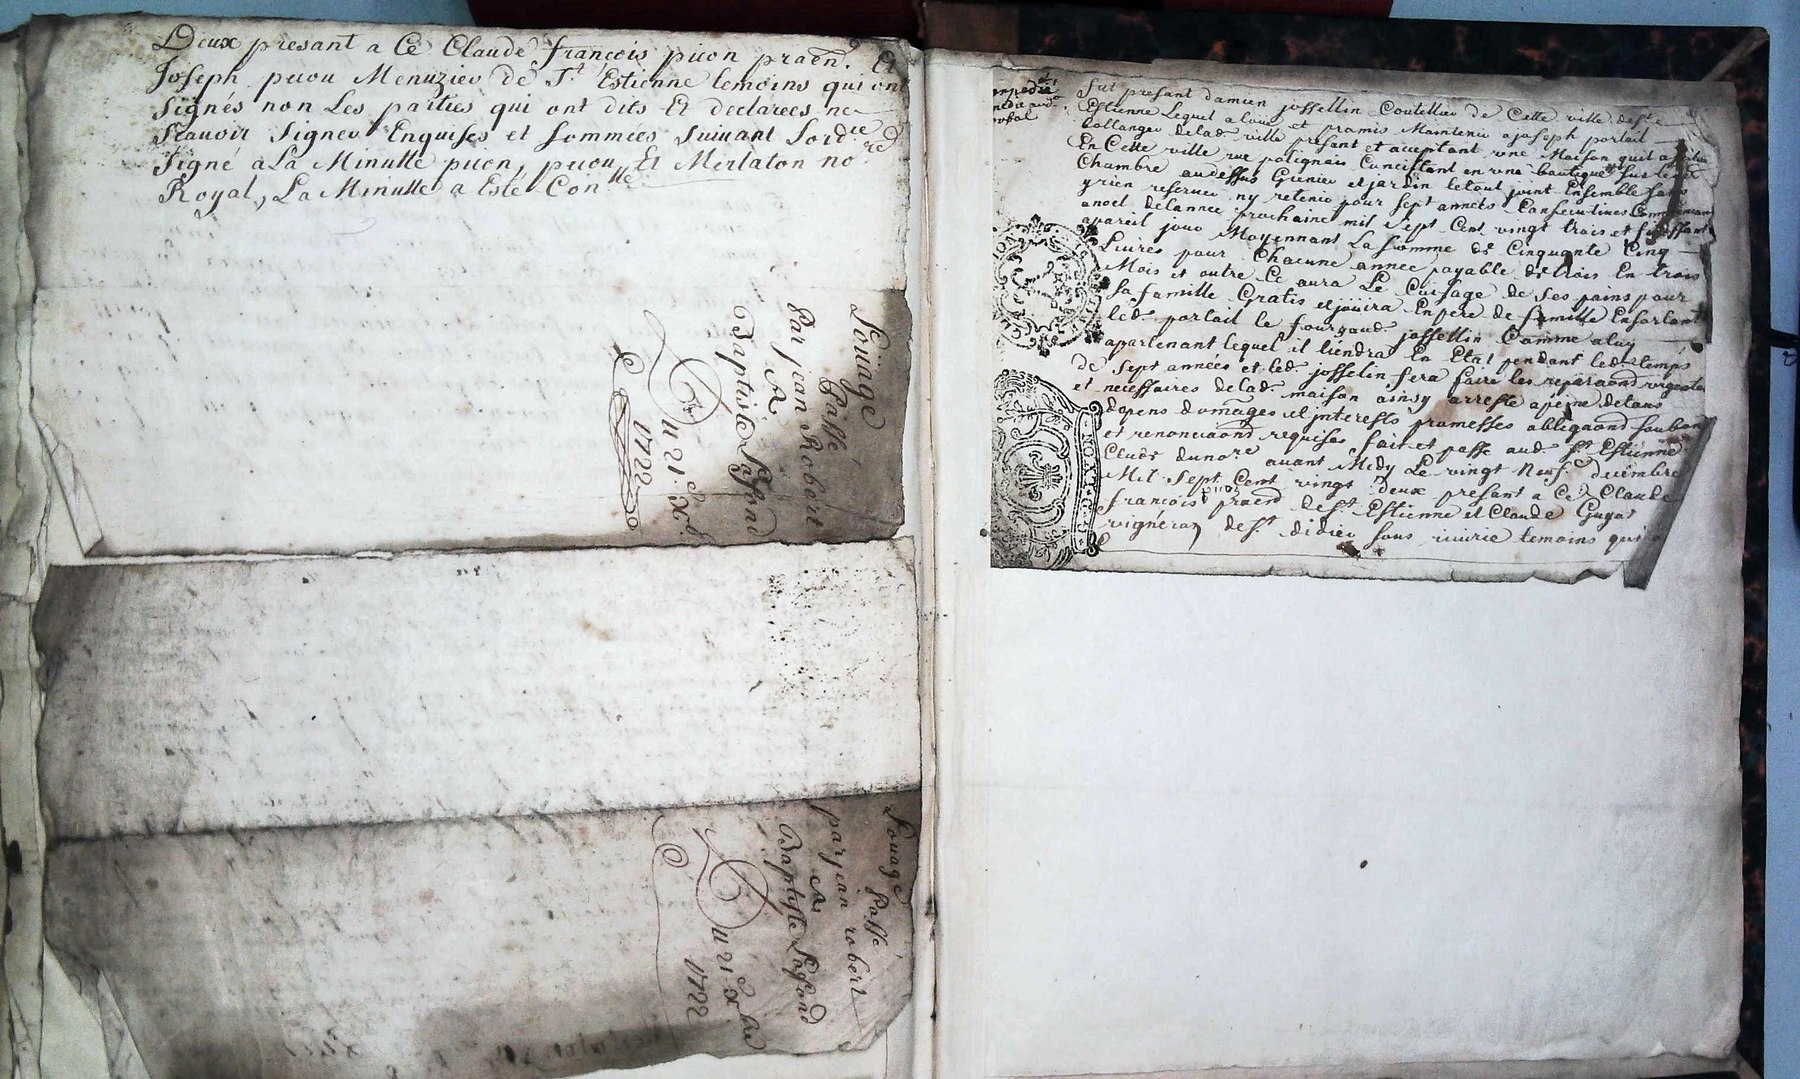 Deux presant a Ce Claude françois puon praõn. Et
Joseph puou Menuzier de St Estienne temoins qui ont
Signés non Les parties qui ont dits Et declarees ne
Scauoir Signer Enquises et Sommees Suiuant Lordre
Signé a La Minutte puon, puou Et Merlaton nore
Royal, La Minutte a Esté Conlle
Louage
Passé
Par jean Robert
A
Baptiste Lafond
Du 21 xbre
1722
Louage Passé
par jean robert
A
Baptiste Lafond
Du 21 xbre
1722
expedié
Fut presant damien jossellin Coutellier de Cette ville de st
Estienne Lequel a loué et promis Maintenir a joseph portail
bollanger de lad. ville presant et aceptant vne Maison quil a
En Cette ville rue polignais Concistant en vne boutique
Chambre au dessus Grenier et jardin le tout joint Ensemble sans
y rien reseruer ny retenir pour sept années Consecutiues
a noel de lannee prochaine mil sept Cent vingt trois et
a pareil jour Moyennant La Somme de Cinquante Cinq
Liures pour Chacune annee payable de trois En trois
Mois et outre Ce aura Le Cuisage de ses pains pour
sa famille Gratis et jouira En pere de famille
led. portail le jossellin Comme a luy
apartenant lequel il tiendra En Etat pendant led. temps
de Sept années et led. josselin fera faire les reparaõns vrgentes
et necessaires de lad. maison ainsy arresté a peine de tous
dopens domages et jnterests promesses obligaõns
et renonciaõns requises fait et passé aud. St Estienne
Etude du nore auant Midy Le vingt Neuf decembre
Mil Sept Cent vingt deux presant a Ce Claude
françois puon praõn de St Estienne et Claude Guyot
vigneron de St didier sous temoins qui